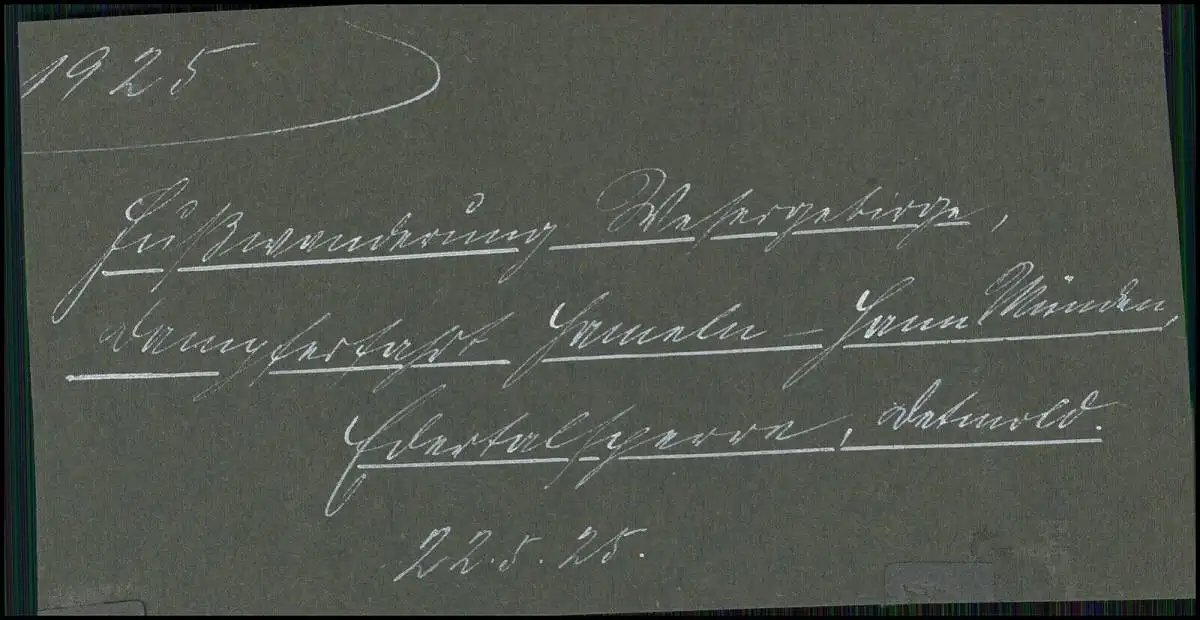 1925
Fußwanderung Wesergebirge,
Dampferfahrt Hameln – Hann Münden,
Edertalsperre, Detmold.
22.5.25.